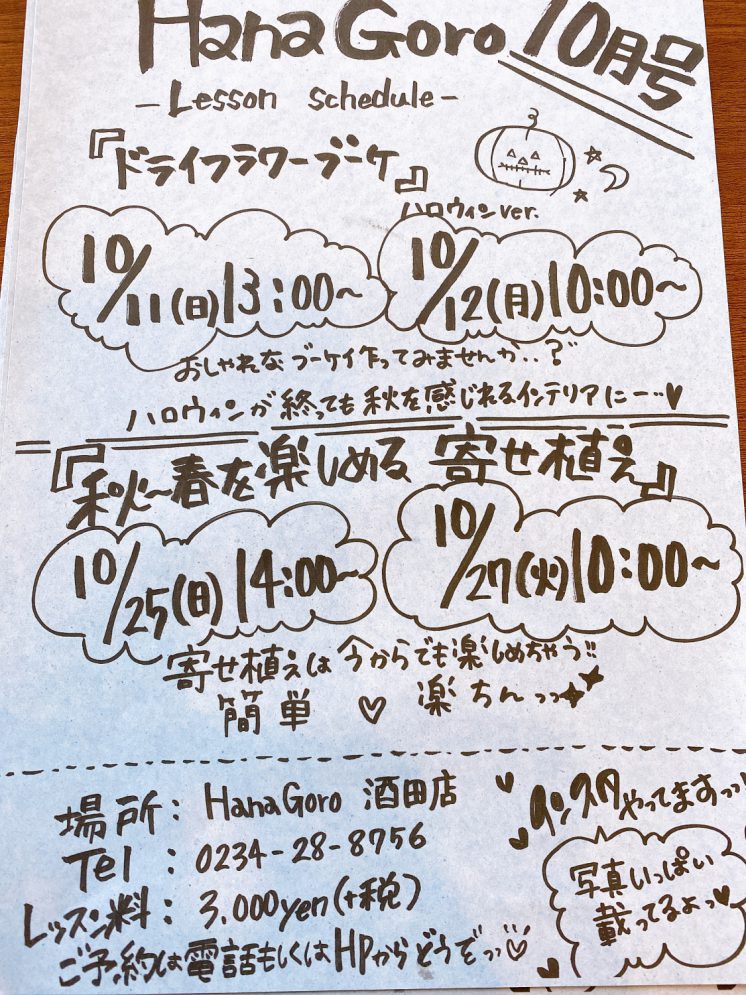 Hana Goro 10月号
- Lesson schedule -
『ドライフラワーブーケ』
ハロウィンver.
10/11(日)13:00~
10/12(月)10:00~
おしゃれなブーケイ作ってみませんか‥?
ハロウィンが終っても秋を感じれるインテリアに一‥♥
『秋~春を楽しめる 寄せ植え』
10/25(日)14:00~
10/27(火)10:00~
寄せ植えは今からでも楽しめちゃう!!
簡単 ♡ 楽ちんっっ
場所: HanaGoro 酒田店
Tel : 0234-28-8756
レッスン料: 3.000yen(+税)
ご予約は電話もしくはHPからどうぞっっ
インスタやってますっっ
写真いっぱい
載ってるよっ♥